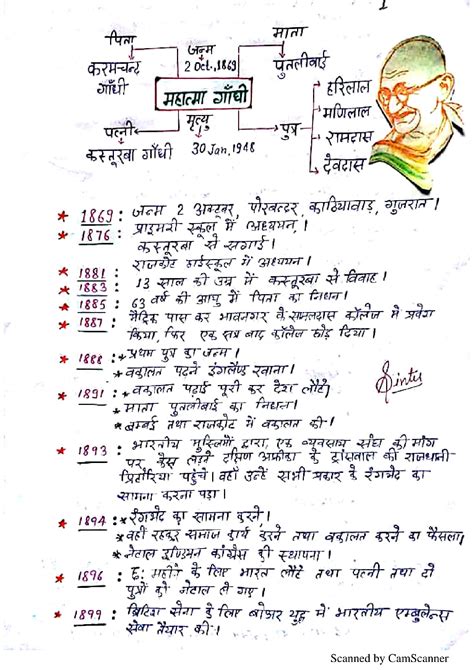 1
पिता
जन्म
माता
करमचन्द गाँधी
2 Oct, 1869
पुतलीबाई
महात्मा गाँधी
हरिलाल
मणिलाल
पत्नी
मृत्यु
पुत्र
रामदास
कस्तूरबा गाँधी
30 Jan, 1948
देवदास
* 1869 : जन्म 2 अक्टूबर, पोरबन्दर, काठियावाड़, गुजरात।
* 1876 : प्राइमरी स्कूल में अध्ययन,
कस्तूरबा से सगाई।
* 1881 : राजकोट हाईस्कूल में अध्ययन।
* 1883 : 13 साल की उम्र में कस्तूरबा से विवाह।
* 1885 : 63 वर्ष की आयु में पिता का निधन।
* 1887 : मैट्रिक पास कर भावनगर के सामलदास कॉलेज में प्रवेश
किया, फिर एक सत्र बाद कॉलेज छोड़ दिया।
* 1888 : * प्रथम पुत्र का जन्म।
* वकालत पढ़ने इंग्लैण्ड रवाना।
* 1891 : * वकालत पढ़ाई पूरी कर देश लौटे।
* माता पुतलीबाई का निधन।
* बम्बई तथा राजकोट में वकालत की।
* 1893 : भारतीय मुस्लिमों द्वारा, एक व्यवसाय संघ की माँग
पर केस लड़ने दक्षिण अफ्रीका के ट्रांसवाल की राजधानी
प्रिटोरिया पहुँचे। वहाँ उन्हें सभी प्रकार के रंगभेद का
सामना करना पड़ा।
* 1894 : * रंगभेद का सामना करने।
* वहीं रहकर समाज कार्य करने तथा वकालत करने का फैसला,
* नेटाल इण्डियन काँग्रेस की स्थापना।
* 1896 : छः महीने के लिए भारत लौटे तथा पत्नी तथा दो
पुत्रों को नेटाल ले गए।
* 1899 : ब्रिटिश सेना के लिए बोअर युद्ध में भारतीय एम्बुलेन्स
सेवा तैयार की।
Scanned by CamScanner